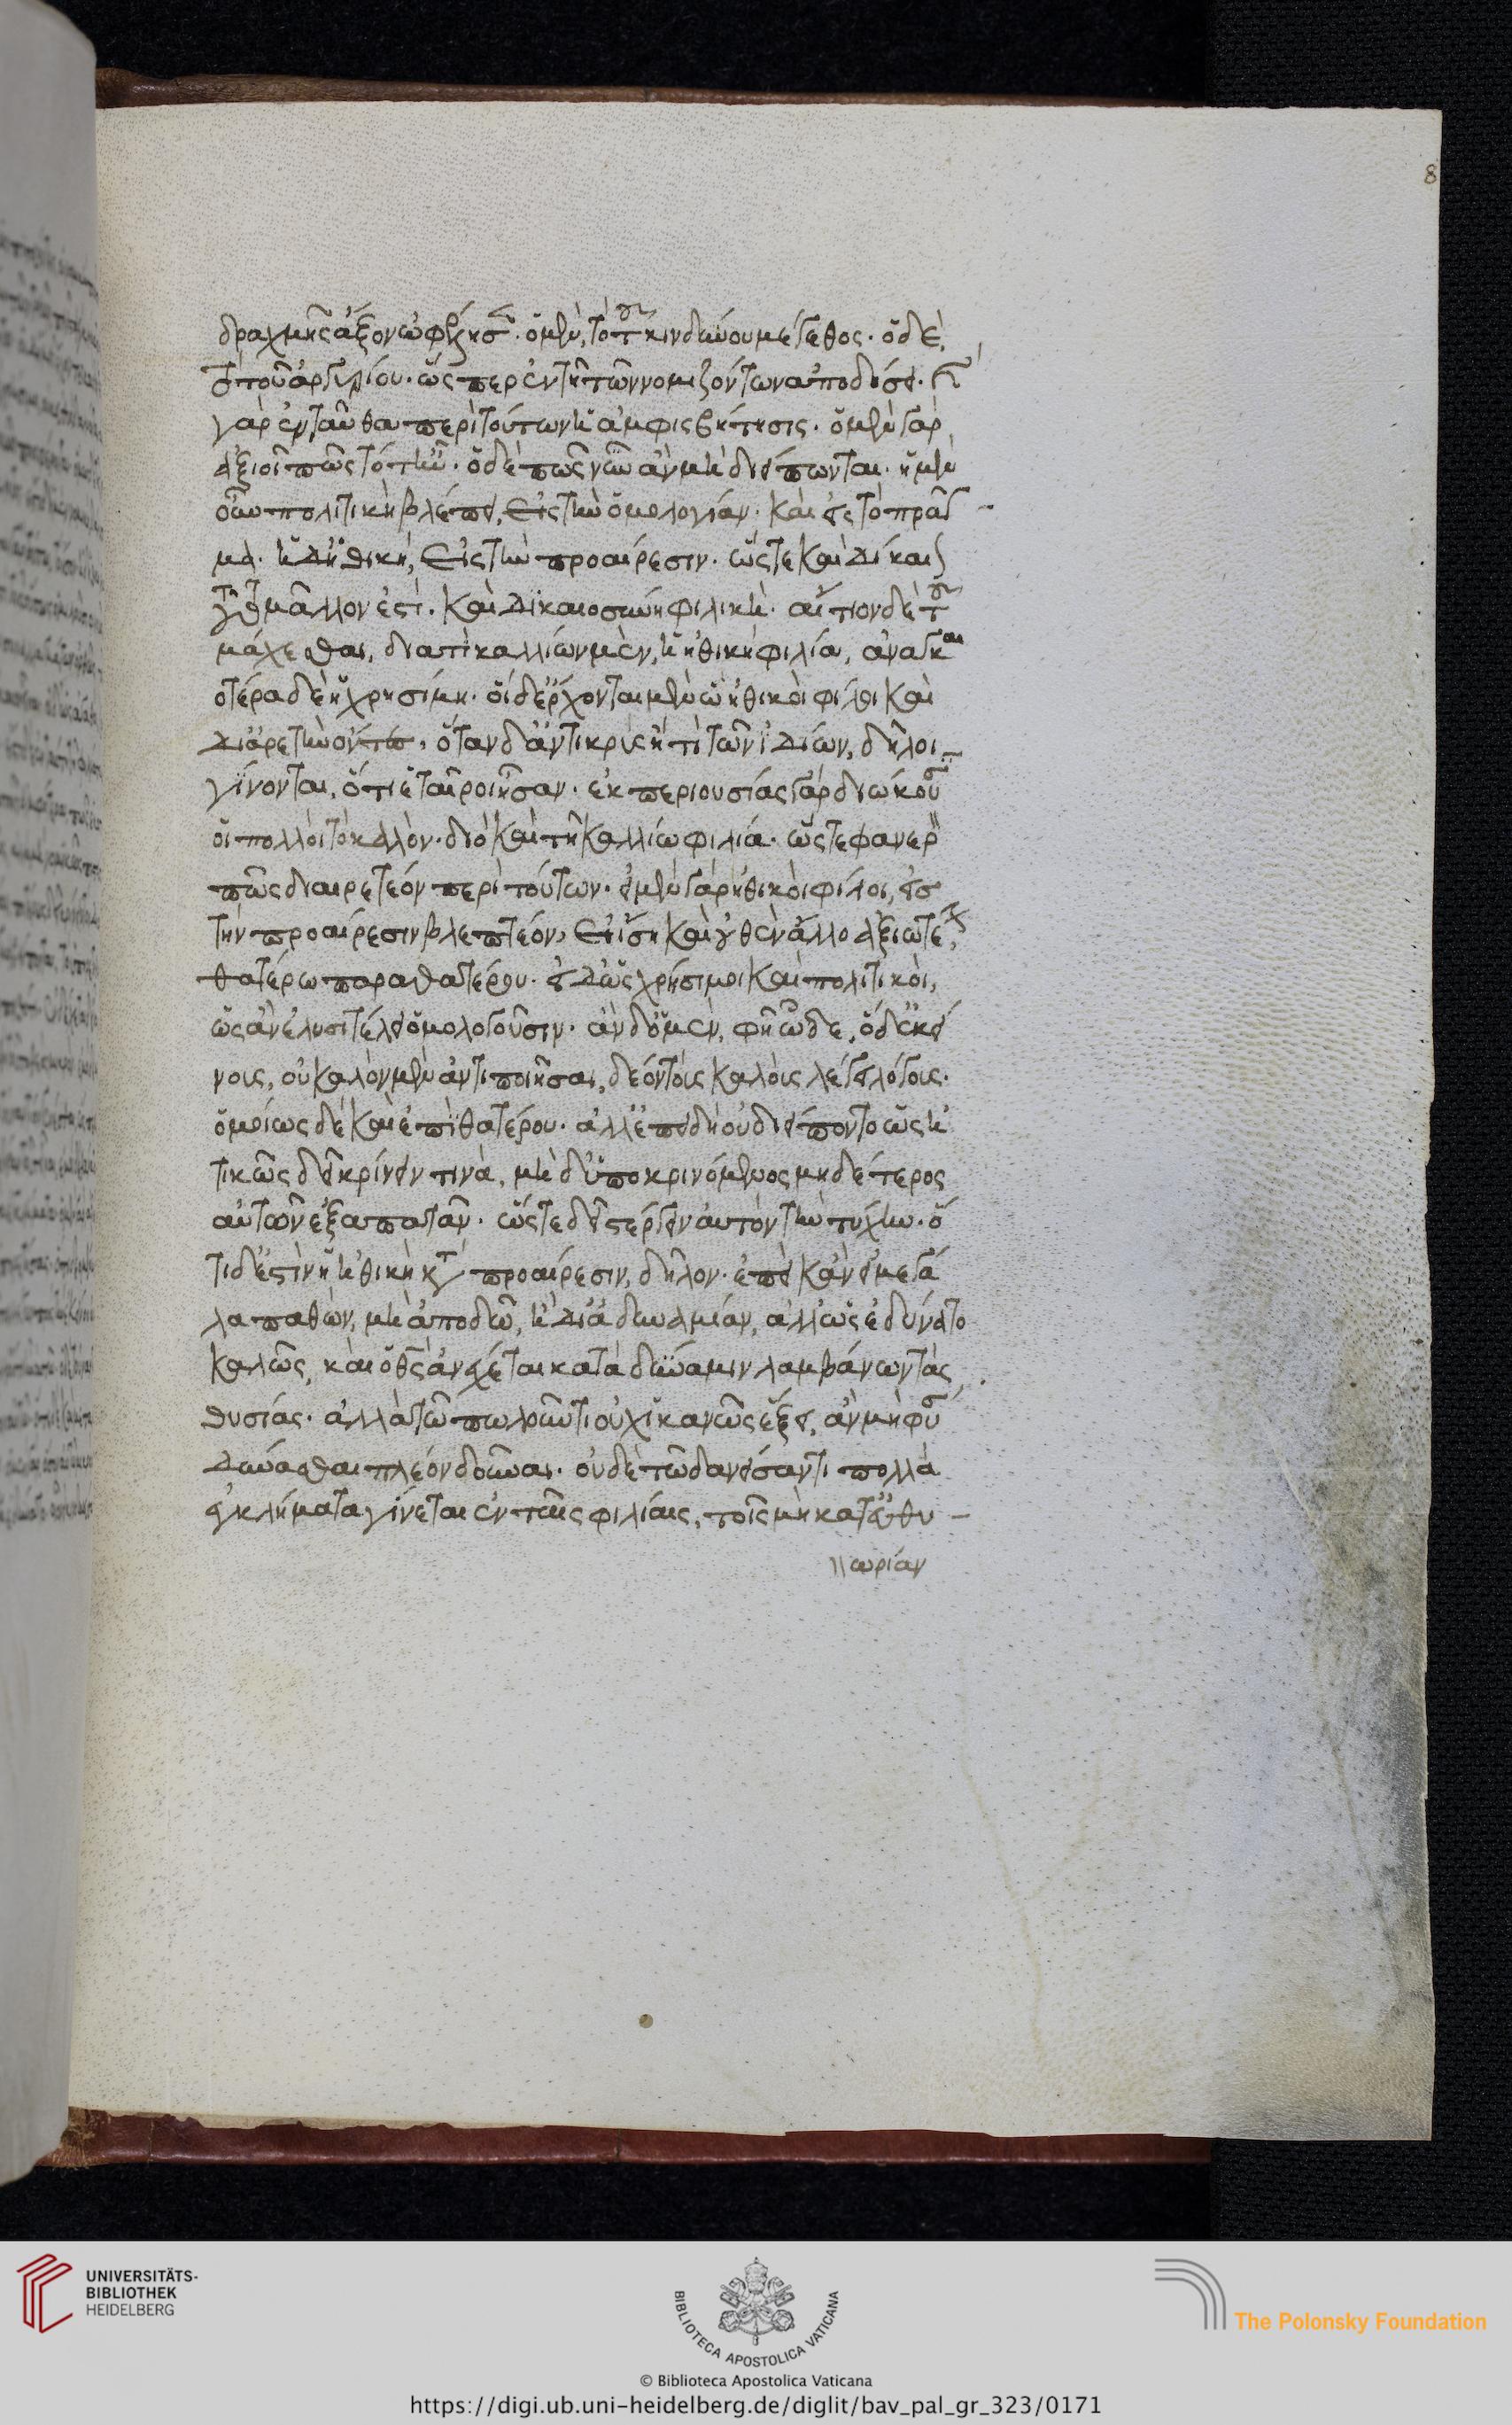 8
δραχμῆς ἄξιον ὠφέλησεν. ὁ μὲν, τὸ τοῦ κινδύνου μέγεθος. ὁ δὲ,
τὸ τοῦ ἀργυρίου. ὥσπερ ἐν τῇ τῶν νομιζόντων ἀποδόσει. καὶ
γὰρ ἐνταῦθα περὶ τούτων ἡ ἀμφισβήτησις. ὁ μὲν γὰρ
ἀξιοῖ πῶς τότ' ἦν. ὁ δὲ πῶς νῦν ἂν μὴ διείπωνται. ἡ μὲν
οὖν πολιτικὴ βλέπει, εἰς τὴν ὁμολογίαν. καὶ εἰς τὸ πρᾶγ-
μα. ἡ δ' ἠθικὴ, εἰς τὴν προαίρεσιν. ὥστε καὶ δίκαιον
τοῦτο μᾶλλόν ἐστι. καὶ δικαιοσύνη φιλική. αἴτιον δὲ τοῦ
μάχεσθαι, διότι καλλίων μὲν, ἡ ἠθικὴ φιλία, ἀναγκαι
οτέρα δὲ ἡ χρησίμη. οἱ δ' ἄρχονται μὲν ὡς ἠθικοὶ φίλοι καὶ
δι' ἀρετὴν ὄντες. ὅταν δ' ἄντικρυς ᾖ τι τῶν ἰδίων, δῆλοι
γίνονται, ὅτι ἕτεροι ἦσαν. ἐκ περιουσίας γὰρ διώκουσιν
οἱ πολλοὶ τὸ καλόν. διὸ καὶ τὴν καλλίω φιλίαν. ὥστε φανερὸν
πῶς διαιρετέον περὶ τούτων. εἰ μὲν γὰρ ἠθικοὶ φίλοι, εἰς
τὴν προαίρεσιν βλεπτέον, εἰ ἴση καὶ οὐθὲν ἄλλο ἀξιωτέον
θατέρω παρὰ θατέρου. εἰ δ' ὡς χρήσιμοι καὶ πολιτικοὶ,
ὡς ἂν ἐλυσιτέλει ὁμολογοῦσιν. ἂν δ' ὁ μὲν, φῇ ὧδε, ὁ δὲ ἐκεί
νως, οὐ καλὸν μὲν ἀντιποιῆσαι, δέον τοὺς καλοὺς λέγειν λόγους.
ὁμοίως δὲ καὶ ἐπὶ θατέρου. ἀλλ' ἐπειδὴ οὐ διείποντο ὡς ἠ
τικῶς δεῖ κρίνειν τινὰ, μηδ' ὑποκρινόμενος μηδέτερος
αὐτῶν ἐξαπατᾶν. ὥστε δεῖ στέργειν αὐτὸν τὴν τύχην. ὅ
τι δ' ἐστὶν ἡ ἠθικὴ κατὰ προαίρεσιν, δῆλον. ἐπεὶ κἂν εἰ μεγά
λα παθὼν, μὴ ἀποδῷ, ἢ δι' ἀδυναμίαν, ἀλλ' ὡς ἐδύνατο
καλῶς, καὶ ὁ θεὸς ἀνέχεται κατὰ δύναμιν λαμβάνων τὰς
θυσίας. ἀλλὰ τῷ πωλοῦντι οὐχ ἱκανῶς ἕξει, ἂν μὴ φῇ
δύνασθαι πλέον δοῦναι. οὐδὲ τῷ δανείσαντι πολλὰ
ἐγκλήματα γίνεται ἐν ταῖς φιλίαις, τοῖς μὴ κατ' εὐθυ –
ωρίαν
UNIVERSITÄTS-
BIBLIOTHEK
HEIDELBERG
BIBLIOTECA APOSTOLICA VATICANA
The Polonsky Foundation
© Biblioteca Apostolica Vaticana
https://digi.ub.uni-heidelberg.de/diglit/bav_pal_gr_323/0171